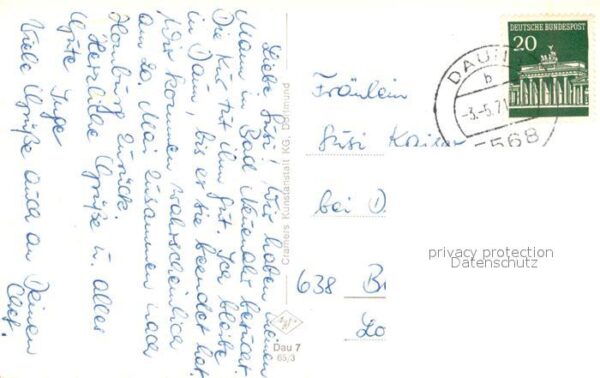 Liebe Susi! Wir haben meinen
Mann in Bad Neuenahr besucht.
Die Kur tut ihm gut. Ich bleibe
in Daun, bis er sie beendet hat.
Wir kommen wahrscheinlich
am 20. Mai zusammen nach
Hamburg zurück.
Herzliche Grüße u. alles
Gute Inge
Viele Grüße auch an Deinen
Chef.
Cramers Kunstanstalt KG, Dortmund
Dau 7
65/3
DEUTSCHE BUNDESPOST
20
DAUN
b
-3.-5.71
568
Fräulein
Susi
bei D
638 B
privacy protection
Datenschutz